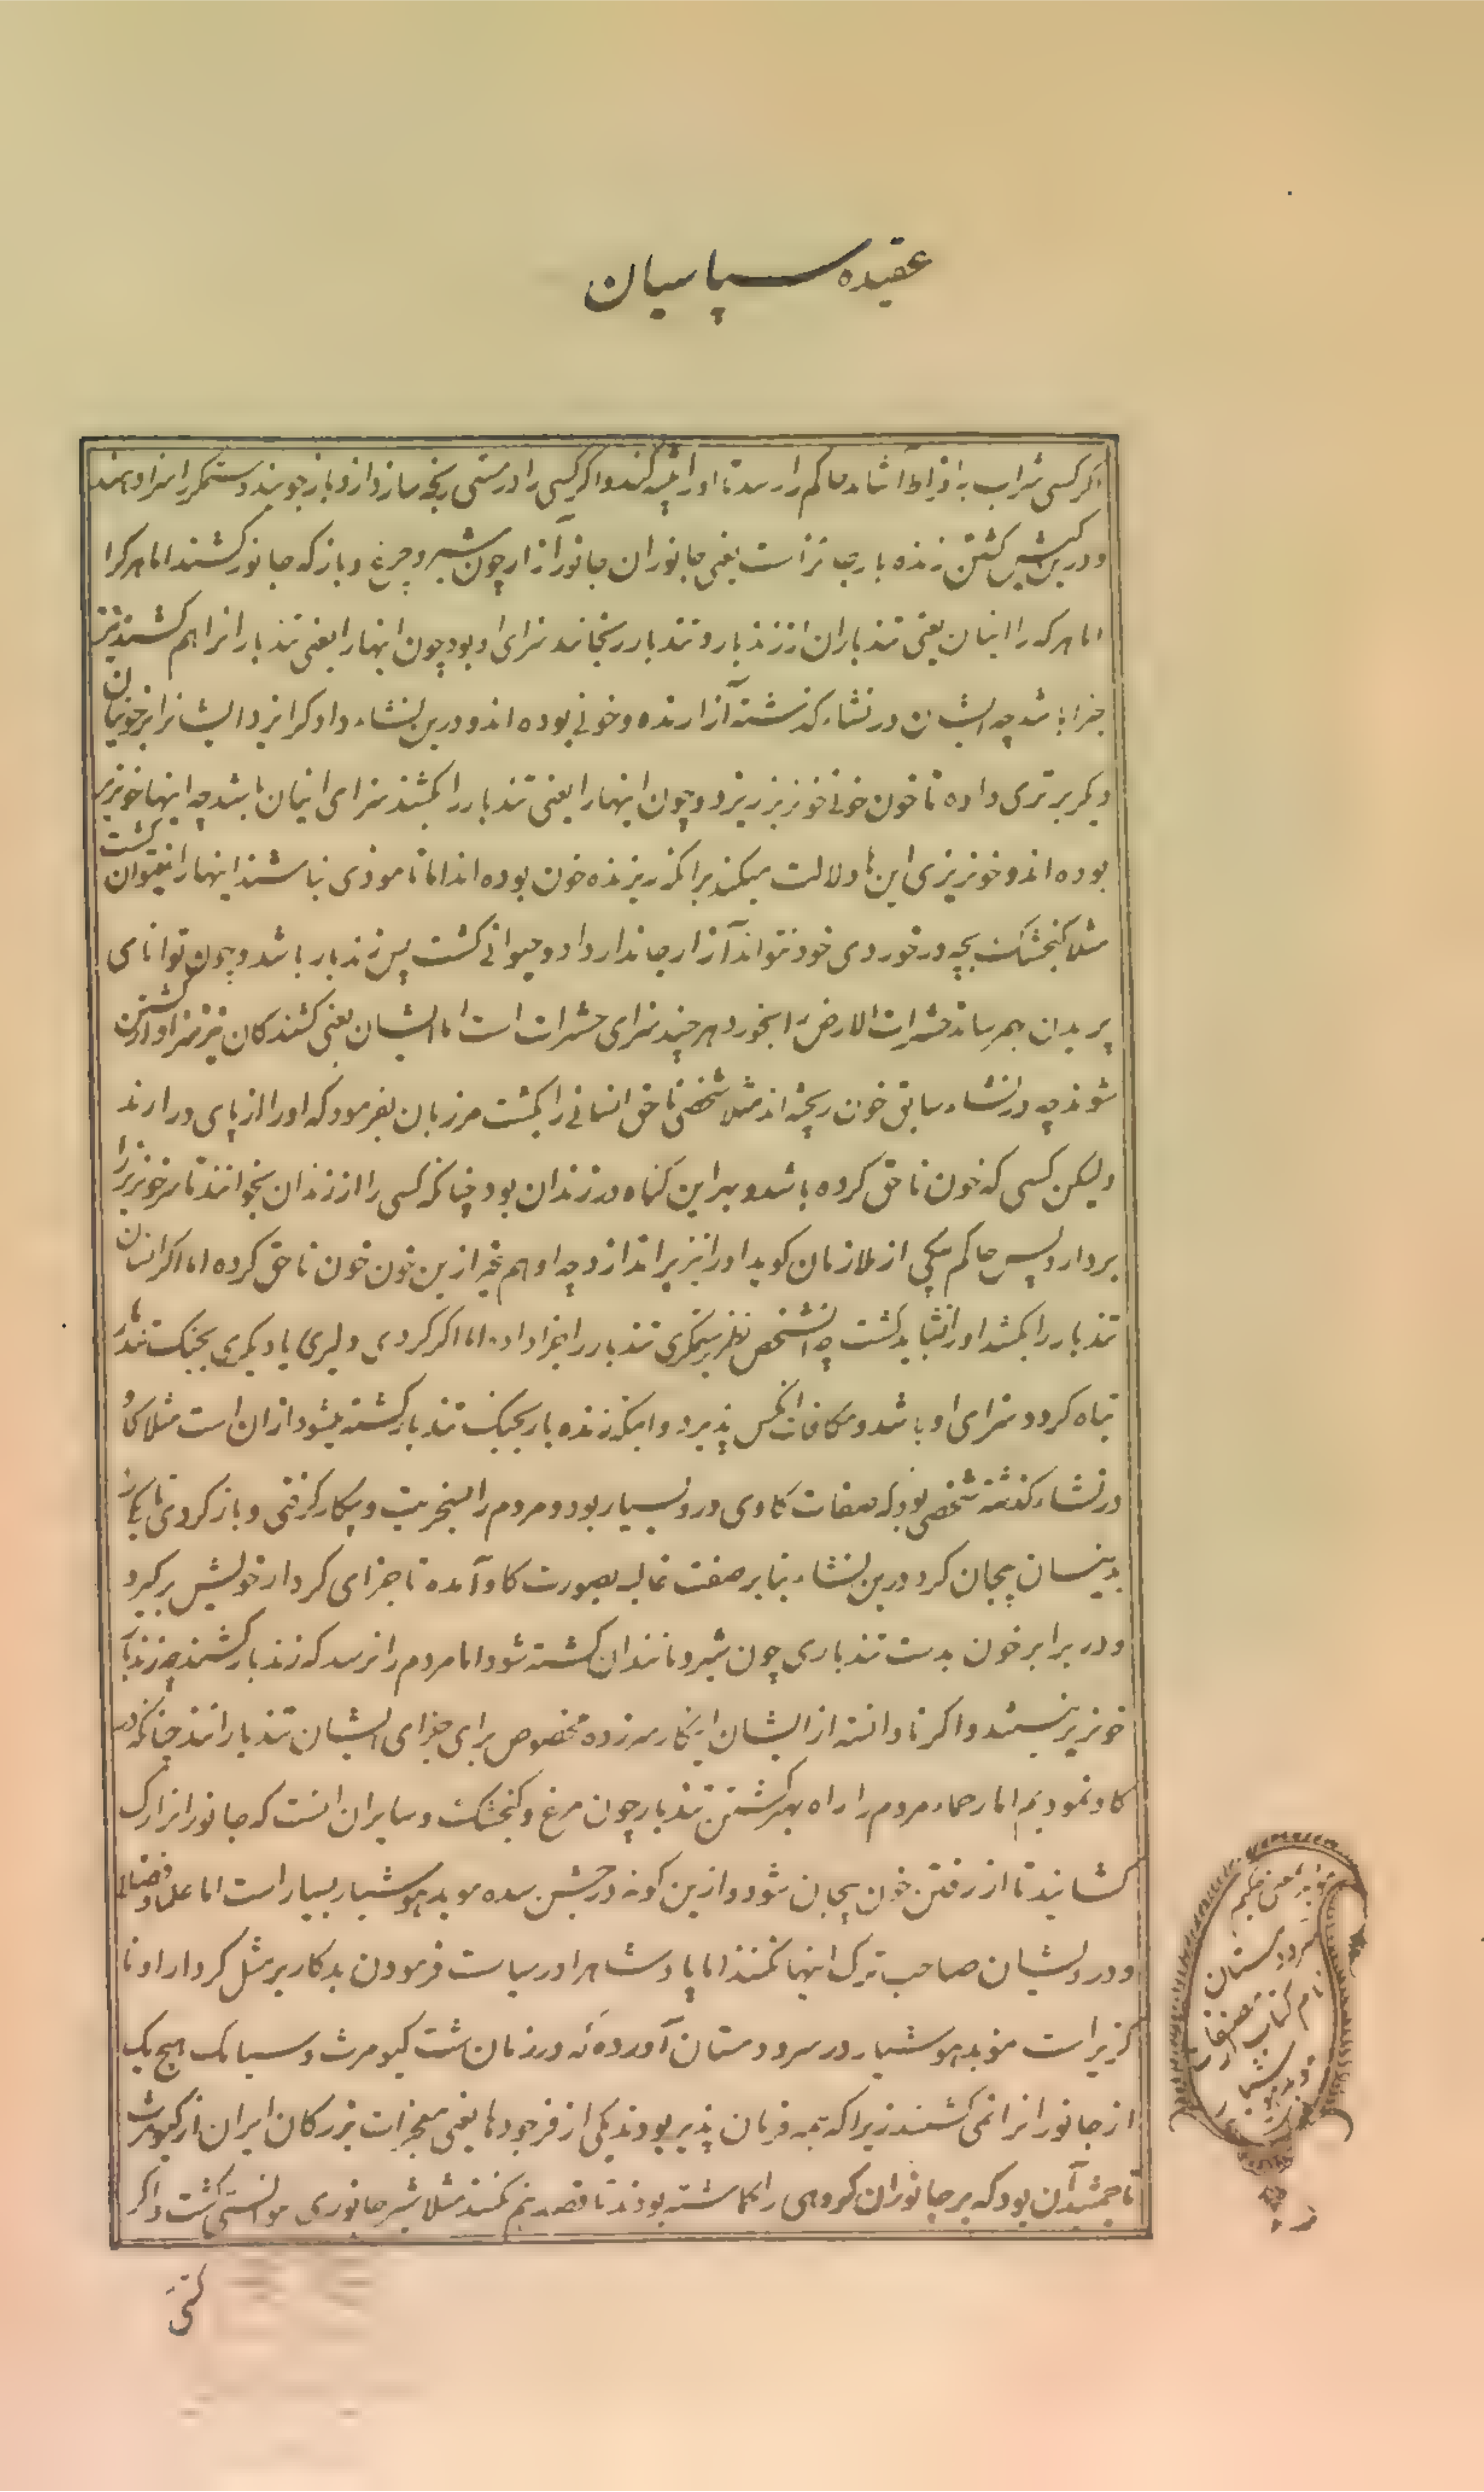 عقیده سپاسیان
اگر کسی شراب بافراط آشامد حاکم را رسد تا او را کند و اگر کسی را در مستی رنجه سازد ازو باز جویند و ستمگر را سزا دهند
و درین کیش کشتن زنده بار جائز است یعنی جانوران جانور آزار چون شیر و چرغ و باز که جانور کشند اما هر کرا
اما هر که را اینان یعنی تندباران از زندبار و تندبار رنجانند سزای او بود چون اینها را یعنی تندبار انرا هم کشند نیز
جزا باشد چه ایشان در نشاء گذشته آزارنده و خونی بوده اند و درین نشاء دادگر ایزد ایشانرا بر خونیان
دیگر برتری داده تا خون خونی خونریز ریزد و چون اینها را یعنی تندبار را کشند سزای اینان باشد چه اینها خونریز
بوده اند و خونریزی این ها دلالت میکند برآنکه ریزنده خون بوده اند اما تا موذی نباشند اینها را نتوان کشت
مثلا کنجشک بچه در خوردی خود نتواند آزار جاندار داد و حیوانی کشت پس زندبار باشد و چون توانای
پریدن بهمرساند حشرات الارض را بخورد هر چند سزای حشرات است اما ایشان یعنی کشندکان نیز سزاوار کشتن
شوند چه در نشاء سابق خون ریخته اند مثلا شخصی ناحق انسانی را بکشت مرزبان بفرمود که او را از پای درارند
ولیکن کسی که خون ناحق کرده باشد و بر این کناه در زندان بود چنانکه کسی را از زندان بخوانند تا سر خونریز را
بردارد پس حاکم بیکی از ملازمان کوید او را نیز براندازد چه او هم غیر ازین خون خون ناحق کرده اما اگر انسان
تندبار را بکشد او را نشاید کشت چه انشخص نظر بستمگری تندبار را جزا داده اما اگر کردی دلیری یا دیگری بجنگ تندبار
تباه کردد سزای او باشد و مکافات انکس پذیرد و اینکه زنده بار بجنگ تندبار کشته میشود ازان است مثلا کاو
در نشاء کذشته شخصی بود که صفات کاوی درو بسیار بود و مردم را بسخریت و بیکار کرفتی و باز کردی تا یکی را
بدینسان بیجان کرد درین نشاء بنا بر صفت غالب بصورت کاو آمده تا جزای کردار خویش برکیرد
و در برابر خون بدست تندباری چون شیر و مانندان کشته شود اما مردم را نرسد که زندبار کشند چه زندبار
خونریز نیستند و اگر نادانسته از ایشان اینکار سرزده مخصوص برای جزای ایشان تندبارانند چنانکه در
کاو نمودیم اما رحماء مردم را راه بهر کشتن تندبار چون مرغ و کنجشک و سایران انست که جانور انرا رک
کشایند تا از رفتن خون بیجان شود و ازین کونه در جشن سده موبد هوشیار بسیار است اما علما و فضلا
و درویشان صاحب ترک اینها نکنند اما پادشاه را در سیاست فرمودن بدکار بر مثل کردار او نا
کزیر است موبد هوشیار در سرودستان آورده که در زمان شت کیومرث و سیامک هیچ یک
از جانور انرا نمی کشتند زیرا که همه فرمان پذیر بودند یکی از فرجودها یعنی معجزات بزرکان ایران از کیومرث
تا جمشید آن بود که بر جانوران کروهی را کماشته بودند تا قصد هم نکنند مثلا شیر جانوری نتوانستی کشت و اگر
کشتی
سرودستان
نام کتاب مصنفات
موبد هوشیار
است